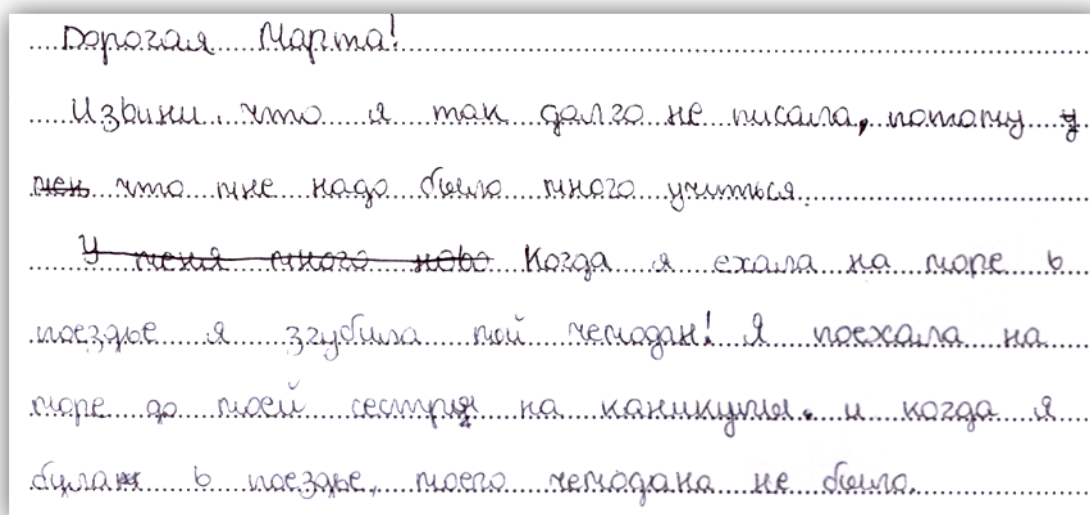 Дорогая Марта!
Извини, что я так долго не писала, потому у
мен что мне надо было много учиться.
У меня много ново Когда я ехала на море в
поездье я згубила мой чемодан! Я поехала на
море до моей сестры на каникулы. и когда я
була в поездье, моего чемодана не было.